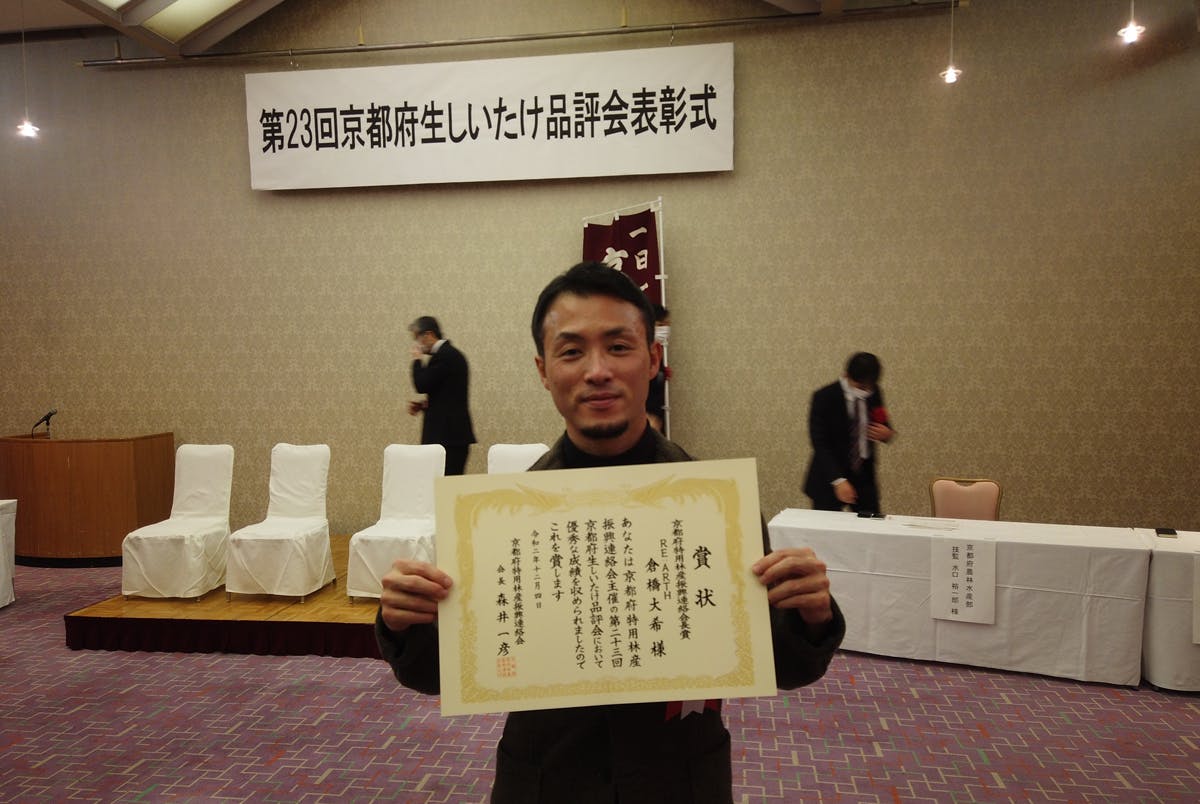 第23回京都府生しいたけ品評会表彰式
一日一
京
賞状
京都府特用林産振興連絡会長賞
RE ARTH
倉橋大希 様
あなたは京都府特用林産
振興連絡会主催の第二十三回
京都府生しいたけ品評会において
優秀な成績を収められましたので
これを賞します
令和二年十二月四日
京都府特用林産振興連絡会
会長 森井一彦
京都府農林水産部
技監 水口 裕一郎 様